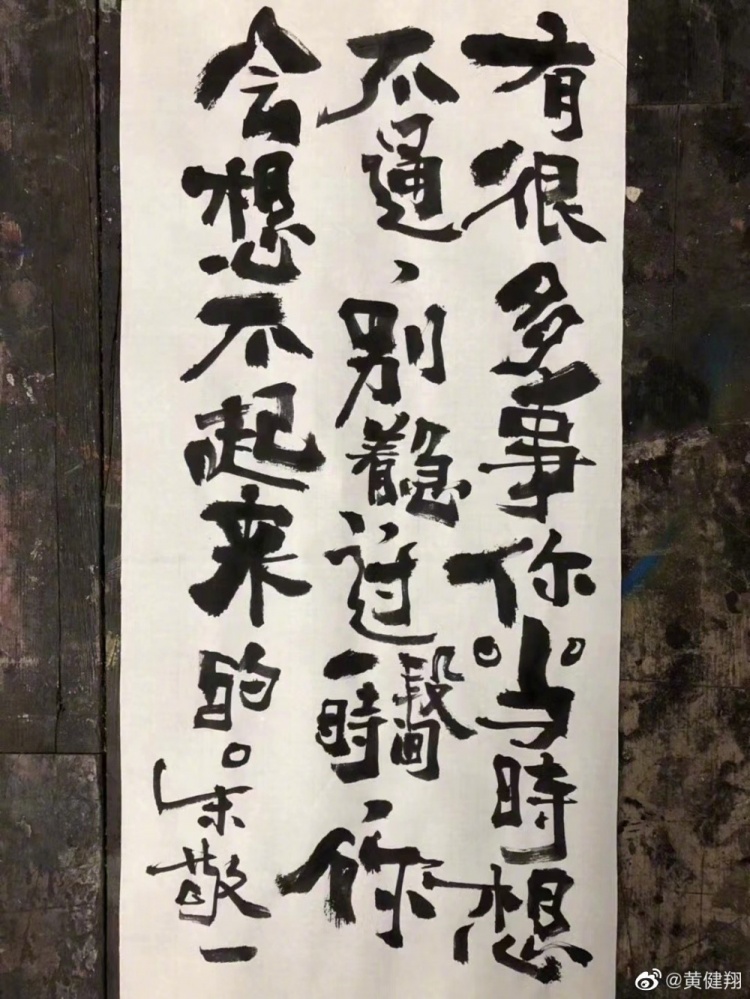 有很多事你当時想
不通、别着急过一段時間、你
会想不起来的。朱敬一
@黄健翔